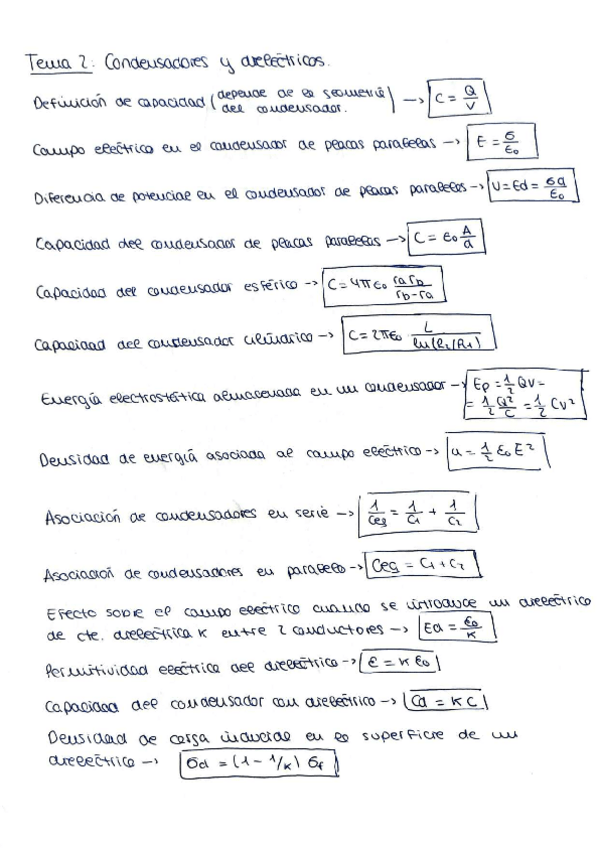 Tema 2: Condensadores y dieléctricos.
Definición de capacidad (depende de la geometría del condensador.) → C = Q/V
Campo eléctrico en el condensador de placas paralelas → E = σ/ε₀
Diferencia de potencial en el condensador de placas paralelas → V = Ed = σd/ε₀
Capacidad del condensador de placas paralelas → C = ε₀ A/d
Capacidad del condensador esférico → C = 4πε₀ ra rb / rb - ra
Capacidad del condensador cilíndrico → C = 2πε₀ L / ln(R₂/R₁)
Energía electrostática almacenada en un condensador → Ep = 1/2 QV =
= 1/2 Q²/C = 1/2 CV²
Densidad de energía asociada al campo eléctrico → u = 1/2 ε₀ E²
Asociación de condensadores en serie → 1/Ceq = 1/C₁ + 1/C₂
Asociación de condensadores en paralelo → Ceq = C₁ + C₂
Efecto sobre el campo eléctrico cuando se introduce un dieléctrico
de cte. dieléctrica K entre 2 conductores → Ed = E₀/K
Permitividad eléctrica del dieléctrico → ε = K ε₀
Capacidad del condensador con dieléctrico → Cd = K C
Densidad de carga inducida en la superficie de un
dieléctrico → σd = (1 - 1/K) σf